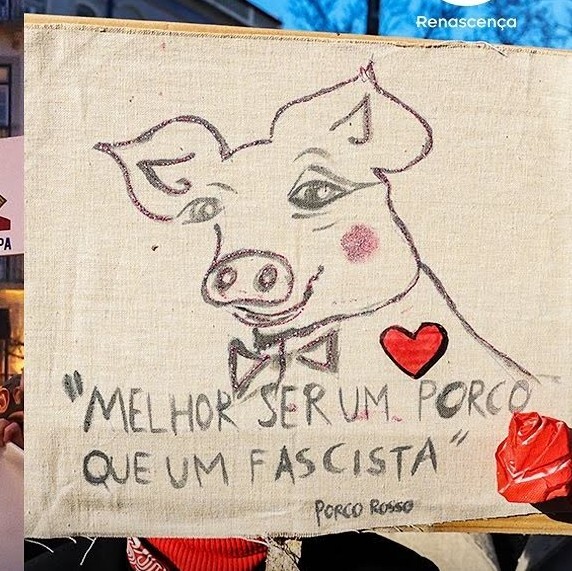 Renascença
PA
"MELHOR SER UM PORCO
QUE UM FASCISTA"
PORCO ROSSO